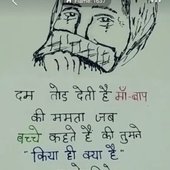 Name: 1637
दम तोड़ देती है माँ-बाप
की ममता जब
बच्चे कहते है की तुमने
"किया ही क्या है"